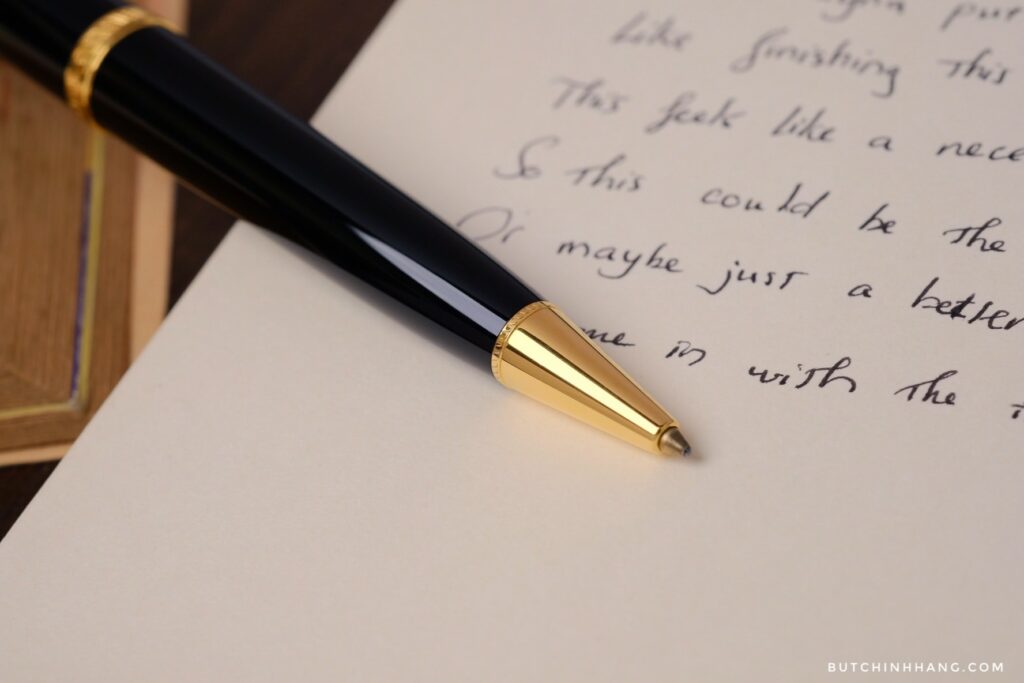 Like finishing this
This feels like a
So this could be the
Or maybe just a better
in with the
BUTCHINHHANG.COM